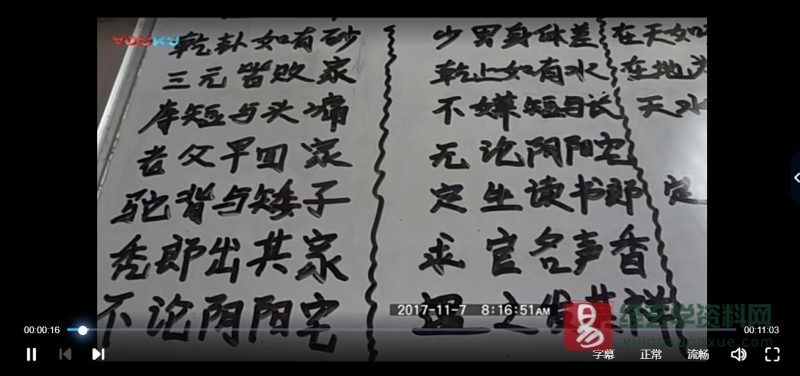 YOUKU
乾卦如有砂
三元皆败家
寿短与头痛
老父早回家
驼背与矮子
秃郎出其家
不论阴阳宅
少男身体差
乾山如有水
不嫌短与长
无论阴阳宅
定生读书郎
求官名声香
之
在天如
在地
天水
定
2017-11-7 8:16:51AM
易学资料网
00:00:16
00:11:03
字幕 正常 流畅